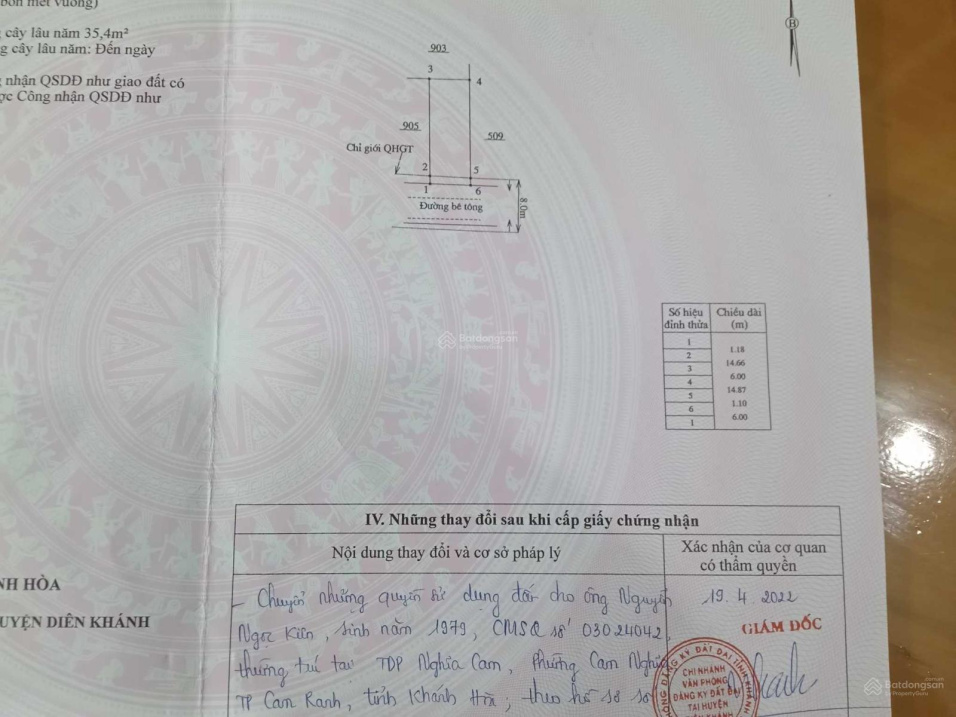 bốn mét vuông)
g cây lâu năm 35,4m²
ng cây lâu năm: Đến ngày
g nhận QSDĐ như giao đất có
ợc Công nhận QSDĐ như
903
3
4
905
509
Chỉ giới QHGT
2
5
1
6
Đường bê tông
8.0m
Số hiệu đỉnh thửa
Chiều dài (m)
1
1.18
2
14.66
3
6.00
4
14.87
5
1.10
6
6.00
1
Batdongsan
by PropertyGuru
IV. Những thay đổi sau khi cấp giấy chứng nhận
Nội dung thay đổi và cơ sở pháp lý
Xác nhận của cơ quan
có thẩm quyền
NH HÒA
UYỆN DIÊN KHÁNH
- Chuyển nhượng quyền sử dụng đất cho ông Nguyễn
Ngọc Kiên, sinh năm 1979, CMSQ số 03024042,
thường trú tại TDP Nghĩa Cam, Phường Cam Nghĩa
TP Cam Ranh, tỉnh Khánh Hòa; theo hồ sơ số
19.4.2022
GIÁM ĐỐC
CHI NHÁNH
VĂN PHÒNG
ĐĂNG KÝ ĐẤT ĐAI
TẠI HUYỆN
Batdongsan
by PropertyGuru